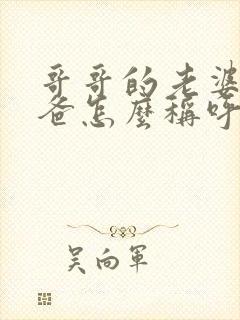 哥哥的老婆
爸怎麼稱呼
吴向軍